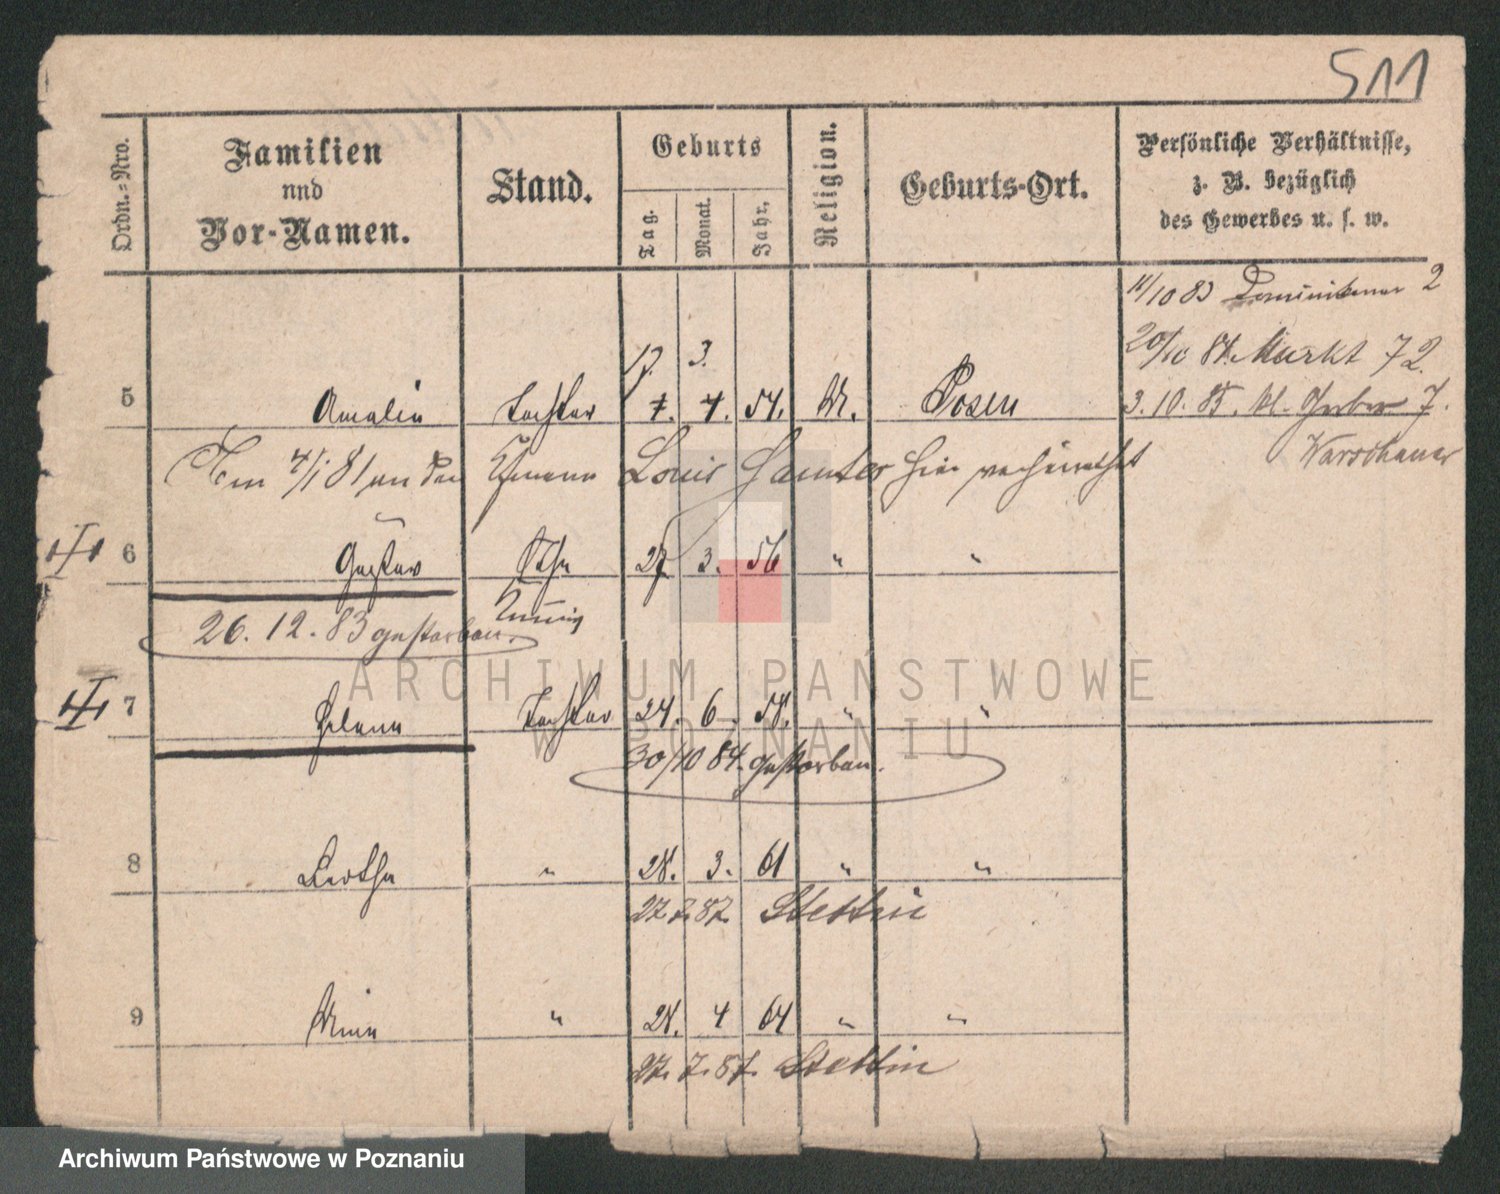 511
Ordn.-Nro.
Familien
und
Vor-Namen.
Stand.
Geburts
Tag.
Monat.
Jahr.
Religion.
Geburts-Ort.
Persönliche Verhältnisse,
z. B. bezüglich
des Gewerbes u. s. w.
11/10 83 Dominikaner 2
20/10 84. Markt 72.
17. 3.
5 Amalie Tochter 7. 4. 54. M. Posen
3. 10. 85. kl. Gerber 7.
Warschauer
Am 4/1 81 an den Kfmann Louis Hamter hier verheirathet
6 Gustav Sohn 27 3. 56 " "
26. 12. 83 gestorben.
7 Helene Tochter 24. 6. 58. " "
30/10 84. gestorben.
8 Bertha " 28. 3. 61 " "
27. 7. 87. Stettin
9 Mina " 28. 4 64 " "
27. 7. 87. Stettin
ARCHIWUM PAŃSTWOWE
W POZNANIU
Archiwum Państwowe w Poznaniu